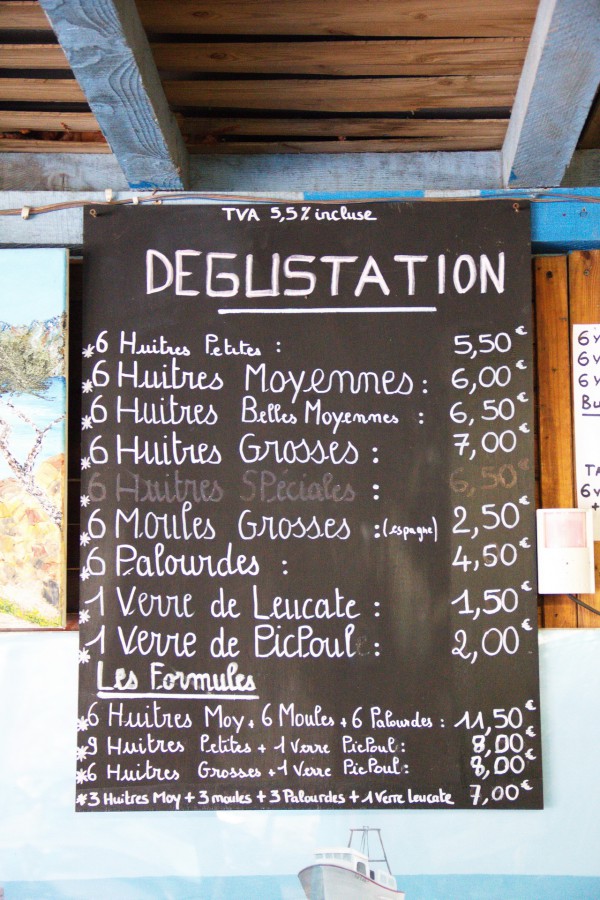 TVA 5,5% incluse
DEGUSTATION
*6 Huitres Petites : 5,50€
*6 Huitres Moyennes : 6,00€
*6 Huitres Belles Moyennes : 6,50€
*6 Huitres Grosses : 7,00€
*6 Huitres SPéciales : 6,50€
*6 Moules Grosses :(espagne) 2,50€
*6 Palourdes : 4,50€
*1 Verre de Leucate : 1,50€
*1 Verre de PicPoul : 2,00€
Les Formules
*6 Huitres Moy + 6 Moules + 6 Palourdes : 11,50€
*9 Huitres Petites + 1 Verre PicPoul : 8,00€
*6 Huitres Grosses + 1 Verre PicPoul : 8,00€
*3 Huitres Moy + 3 moules + 3 Palourdes + 1 Verre Leucate 7,00€